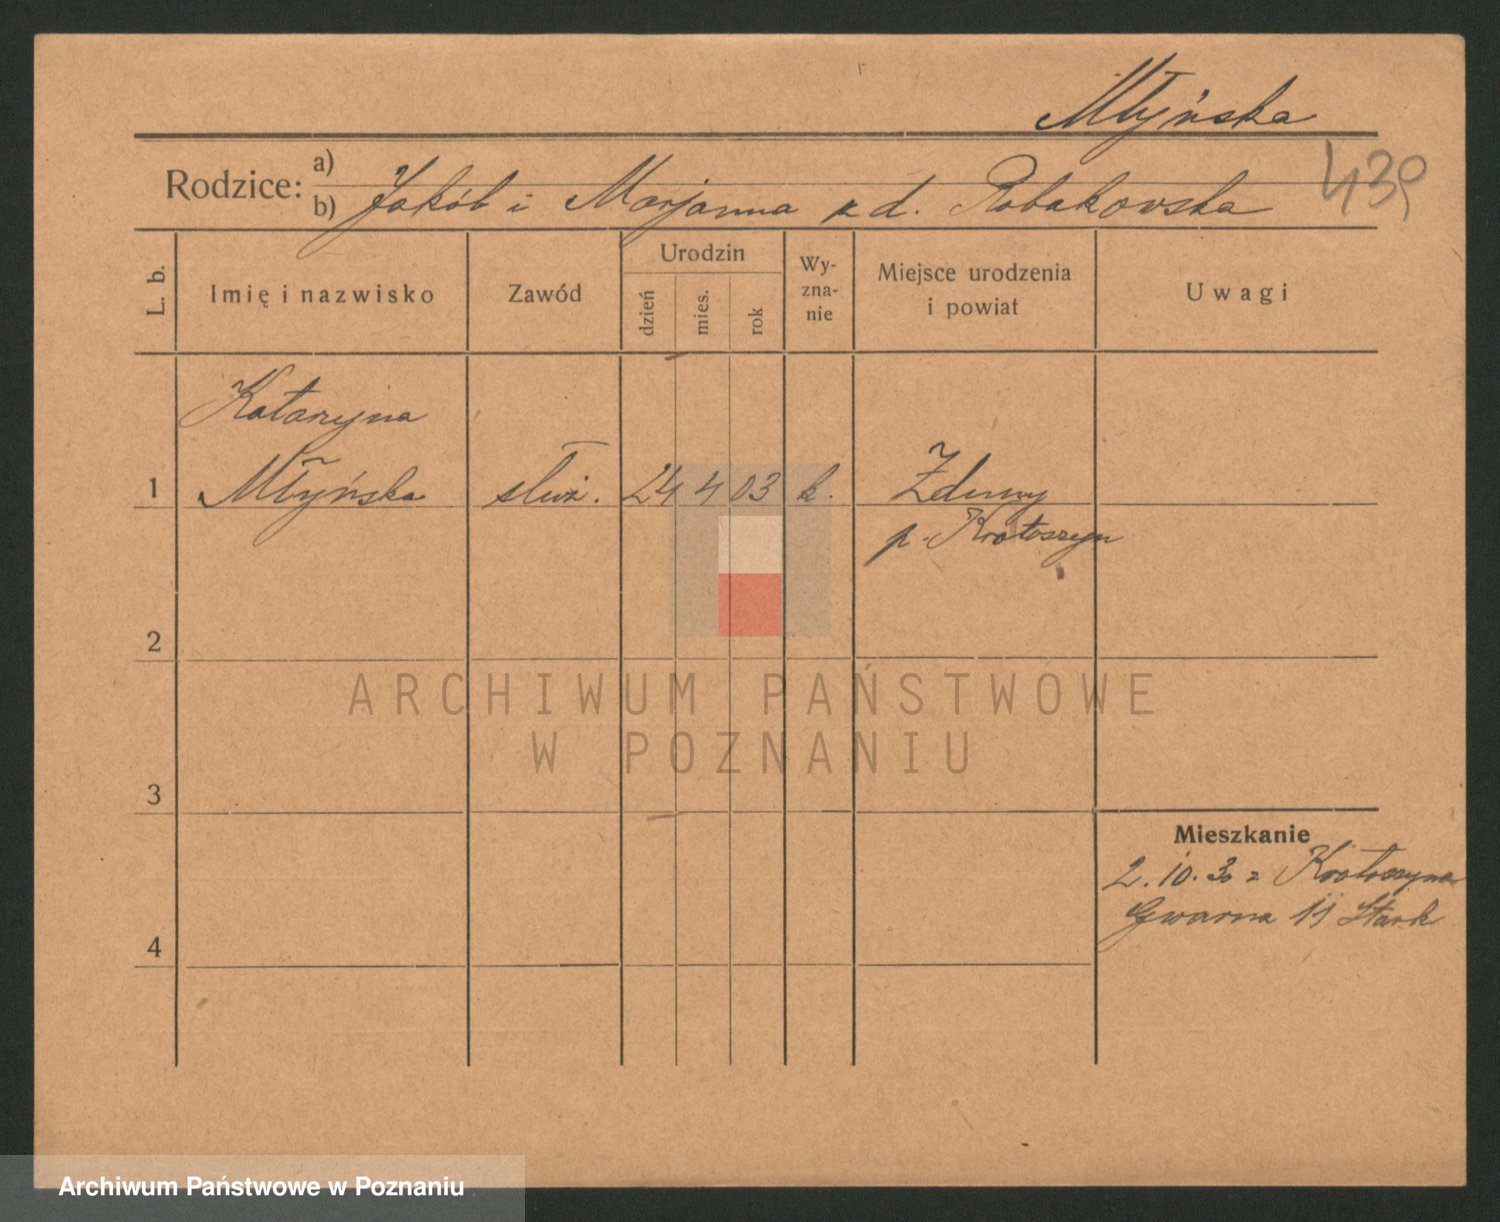 Młyńska
Rodzice:
a)
b) Jakób i Marjanna z d. Robakowska
439
L. b.
Imię i nazwisko
Zawód
Urodzin
dzień
mies.
rok
Wy-
zna-
nie
Miejsce urodzenia
i powiat
Uwagi
Katarzyna
1 Młyńska służ. 24 4 03 k. Zduny
p. Krotoszyn
2
3
4
ARCHIWUM PAŃSTWOWE
W POZNANIU
Mieszkanie
2.10.30 z Krotoszyna
Gwarna 11 Stark
Archiwum Państwowe w Poznaniu